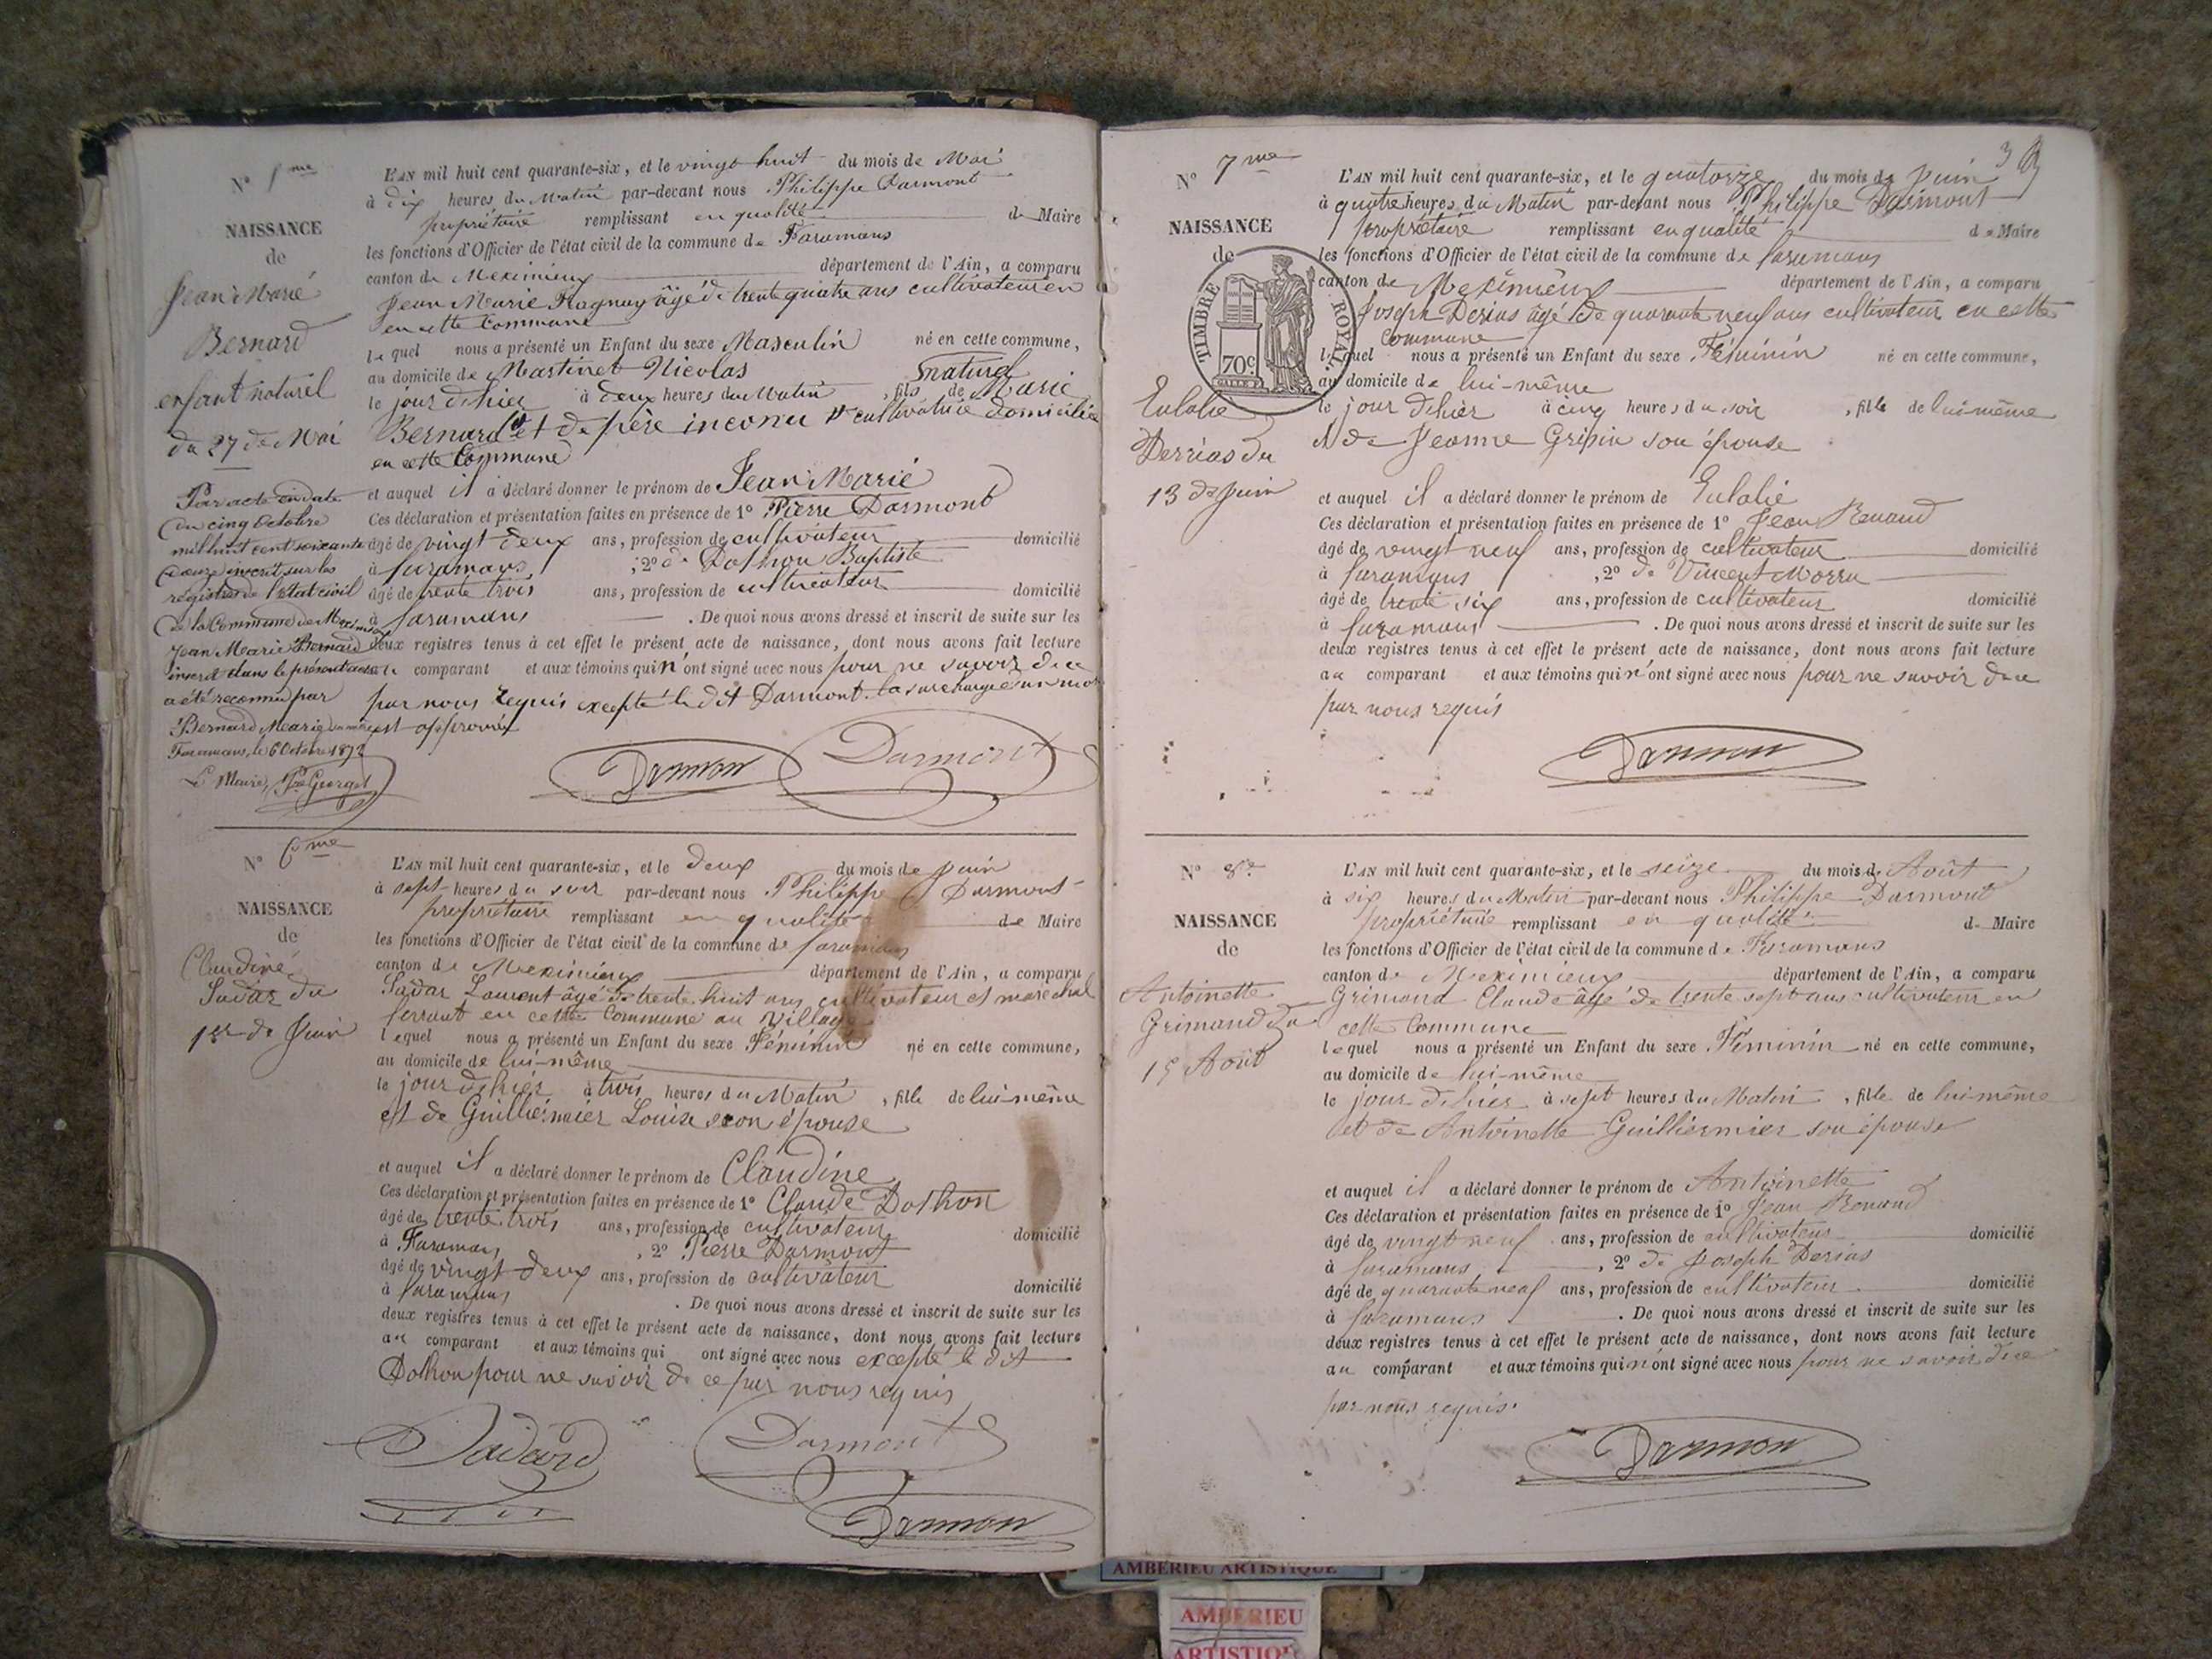 N° 5me
NAISSANCE
de
Jean Marie
Bernard
enfant naturel
du 27 de Mai
Par acte en date
du cinq Octobre
mil huit cent soixante
douze inscrit sur les
registres de l'état civil
de la Commune de Meximieux
Jean Marie Bernard
inscrit dans le présent acte
a été reconnu par
Bernard Marie sa mère
Faramans, le 6 Octobre 1872
Le Maire,
L'AN mil huit cent quarante-six, et le vingt huit du mois de Mai
à dix heures du Matin par-devant nous Philippe Darmont
propriétaire remplissant en qualité de Maire
les fonctions d'Officier de l'état civil de la commune de Faramans
canton de Meximieux département de l'Ain, a comparu
Jean Marie Ragnay âgé de trente quatre ans cultivateur en
en cette Commune
lequel nous a présenté un Enfant du sexe Masculin né en cette commune,
au domicile de Martinet Nicolas naturel
le jour d'hier à deux heures du Matin, fils de Marie
Bernard et de père inconu cultivatrice domiciliée
en cette Commune
et auquel il a déclaré donner le prénom de Jean Marie
Ces déclaration et présentation faites en présence de 1° Pierre Darmont
âgé de vingt deux ans, profession de cultivateur domicilié
à faramans ; 2° de Dothon Baptiste
âgé de trente trois ans, profession de cultivateur domicilié
à faramans . De quoi nous avons dressé et inscrit de suite sur les
deux registres tenus à cet effet le présent acte de naissance, dont nous avons fait lecture
au comparant et aux témoins qui n'ont signé avec nous pour ne savoir de ce
par nous requis excepté le dit Darmont. la surchargé d'un mot
est approuvé
Darmon Darmont
N° 6me
NAISSANCE
de
Claudine
Sadar du
1er de Juin
L'AN mil huit cent quarante-six, et le deux du mois de Juin
à sept heures du soir par-devant nous Philippe Darmont
propriétaire remplissant en qualité de Maire
les fonctions d'Officier de l'état civil de la commune de faramans
canton de Meximieux département de l'Ain, a comparu
Sadar Laurent âgé de trente huit ans cultivateur et maréchal
ferrant en cette Commune au Village
lequel nous a présenté un Enfant du sexe Féminin né en cette commune,
au domicile de lui-même
le jour d'hier à trois heures du Matin, fille de lui-même
et de Guilliermier Louise son épouse
et auquel il a déclaré donner le prénom de Claudine
Ces déclaration et présentation faites en présence de 1° Claude Dothon
âgé de trente trois ans, profession de cultivateur domicilié
à Faramans, 2° Pierre Darmont
âgé de vingt deux ans, profession de cultivateur domicilié
à faramans . De quoi nous avons dressé et inscrit de suite sur les
deux registres tenus à cet effet le présent acte de naissance, dont nous avons fait lecture
au comparant et aux témoins qui ont signé avec nous excepté le dit
Dothon pour ne savoir de ce par nous requis
Sadard Darmont
Darmon
3
N° 7me
NAISSANCE
de
TIMBRE ROYAL
70c
Eulalie
Derrias du
13 de Juin
L'AN mil huit cent quarante-six, et le quatorze du mois de Juin
à quatre heures du Matin par-devant nous Philippe Darmont
propriétaire remplissant en qualité de Maire
les fonctions d'Officier de l'état civil de la commune de faramans
canton de Meximieux département de l'Ain, a comparu
Joseph Derias âgé de quarante neuf ans cultivateur en cette
Commune
lequel nous a présenté un Enfant du sexe Féminin né en cette commune,
au domicile de lui-même
le jour d'hier à cinq heures du soir, fille de lui-même
et de Jeanne Gripin son épouse
et auquel il a déclaré donner le prénom de Eulalie
Ces déclaration et présentation faites en présence de 1° Jean Renaud
âgé de vingt neuf ans, profession de cultivateur domicilié
à faramans, 2° de Vincent Morra
âgé de trente six ans, profession de cultivateur domicilié
à faramans . De quoi nous avons dressé et inscrit de suite sur les
deux registres tenus à cet effet le présent acte de naissance, dont nous avons fait lecture
au comparant et aux témoins qui n'ont signé avec nous pour ne savoir de ce
par nous requis
Darmon
N° 8e
NAISSANCE
de
Antoinette
Grimand du
15 Août
L'AN mil huit cent quarante-six, et le seize du mois de Août
à six heures du Matin par-devant nous Philippe Darmont
propriétaire remplissant en qualité de Maire
les fonctions d'Officier de l'état civil de la commune de Faramans
canton de Meximieux département de l'Ain, a comparu
Grimand Claude âgé de trente sept ans cultivateur en
cette Commune
lequel nous a présenté un Enfant du sexe Féminin né en cette commune,
au domicile de lui-même
le jour d'hier à sept heures du Matin, fille de lui-même
et de Antoinette Guilliermier son épouse
et auquel il a déclaré donner le prénom de Antoinette
Ces déclaration et présentation faites en présence de 1° Jean Renaud
âgé de vingt neuf ans, profession de cultivateur domicilié
à faramans, 2° de Joseph Derias
âgé de quarante neuf ans, profession de cultivateur domicilié
à faramans . De quoi nous avons dressé et inscrit de suite sur les
deux registres tenus à cet effet le présent acte de naissance, dont nous avons fait lecture
au comparant et aux témoins qui n'ont signé avec nous pour ne savoir de ce
par nous requis.
Darmon
AMBERIEU ARTISTIQUE
AMBERIEU
ARTISTIQU